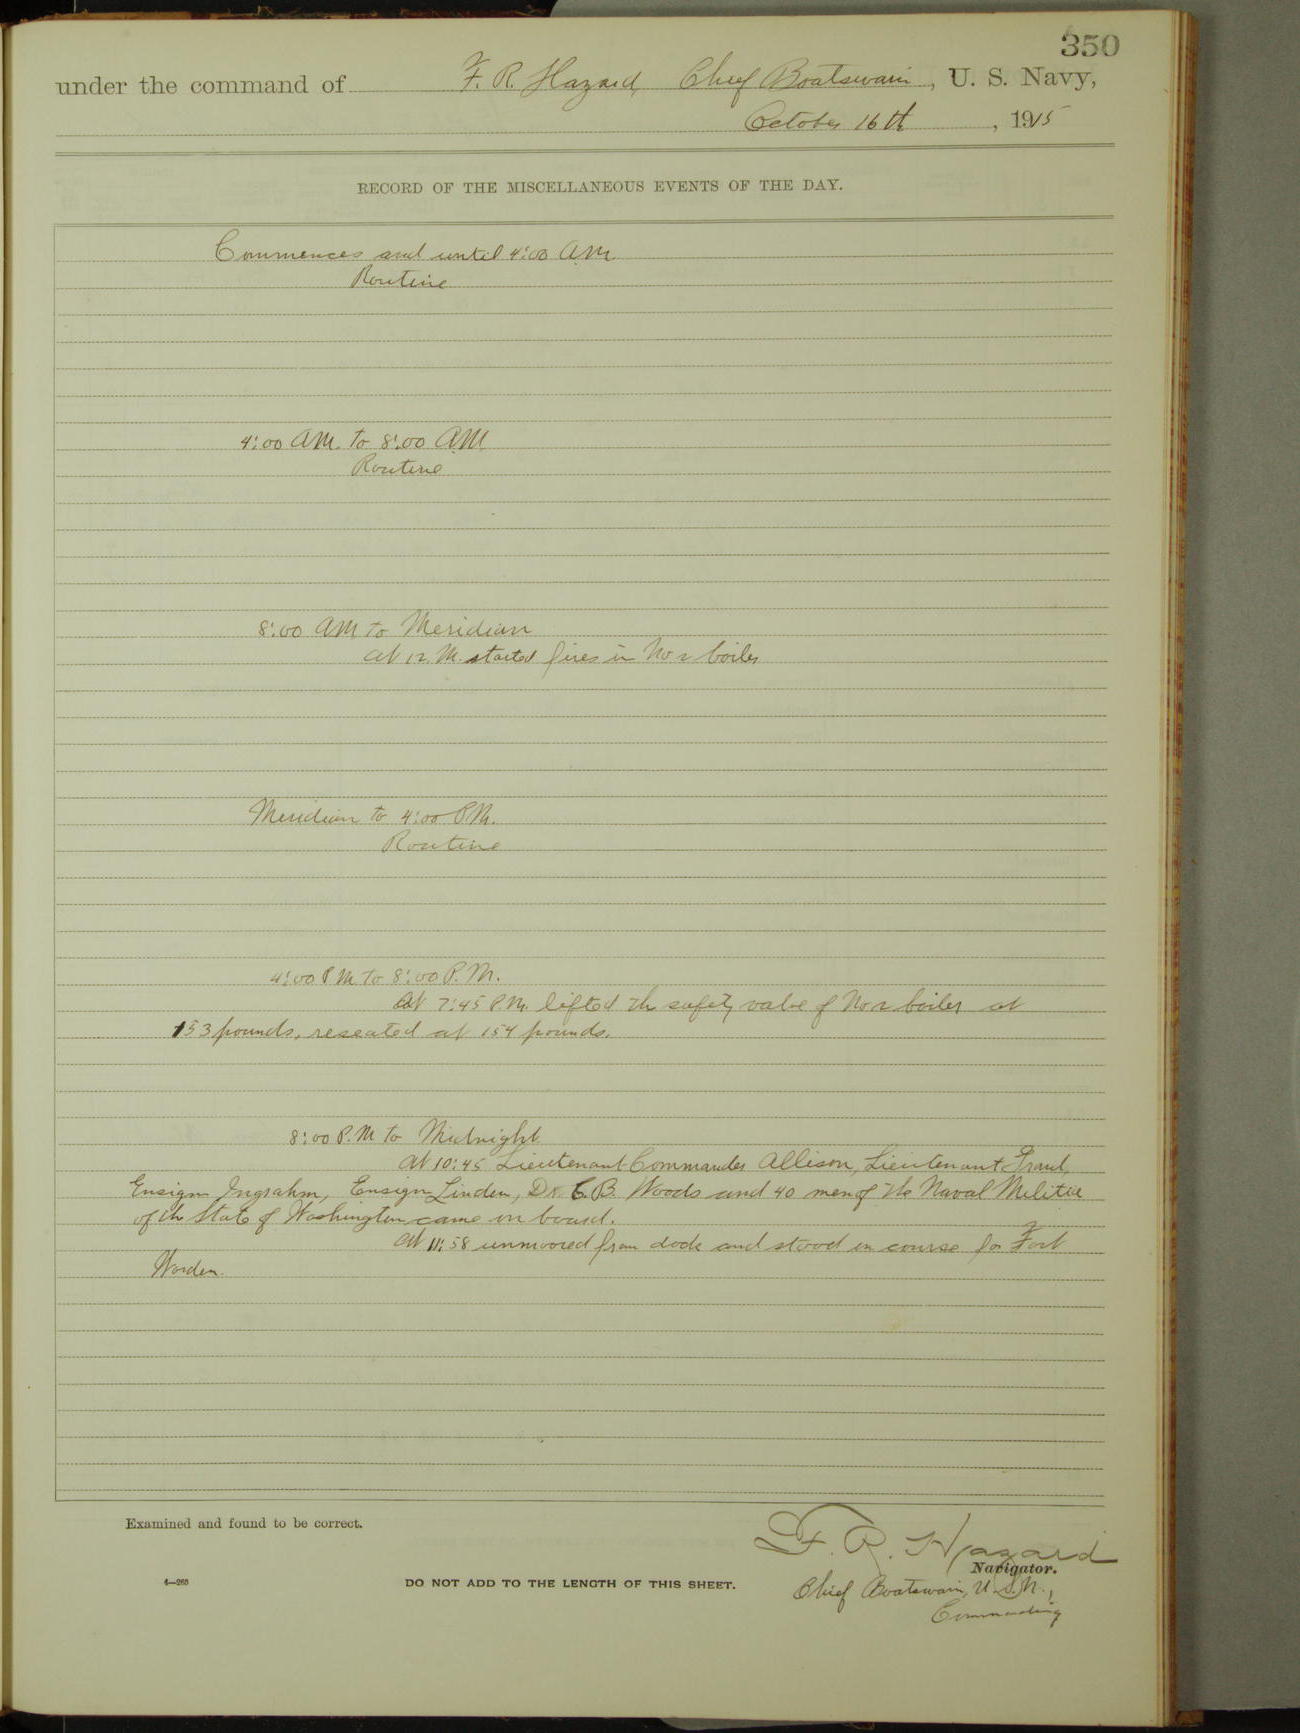 350
under the command of F. R. Hazard, Chief Boatswain, U. S. Navy,
October 16th, 1915
RECORD OF THE MISCELLANEOUS EVENTS OF THE DAY.
Commences and until 4:00 A.M.
Routine
4:00 A.M. to 8:00 A.M.
Routine
8:00 A.M. to Meridian
At 12. M. started fires in No 2 boiler
Meridian to 4:00 P.M.
Routine
4:00 P.M. to 8:00 P.M.
At 7:45 P.M. lifted the safety valve of No 2 boiler at
153 pounds, reseated at 154 pounds.
8:00 P.M to Midnight
At 10:45 Lieutenant Commander Allison, Lieutenant
Ensign Ingrahm, Ensign Linden, Dr. C. B. Woods and 40 men of the Naval Militia
of the State of Washington came on board.
At 11:58 unmoored from dock and stood on course for Fort
Worden.
Examined and found to be correct.
F. R. Hazard
Navigator.
4—265
DO NOT ADD TO THE LENGTH OF THIS SHEET.
Chief Boatswain, U.S.N.,
Commanding